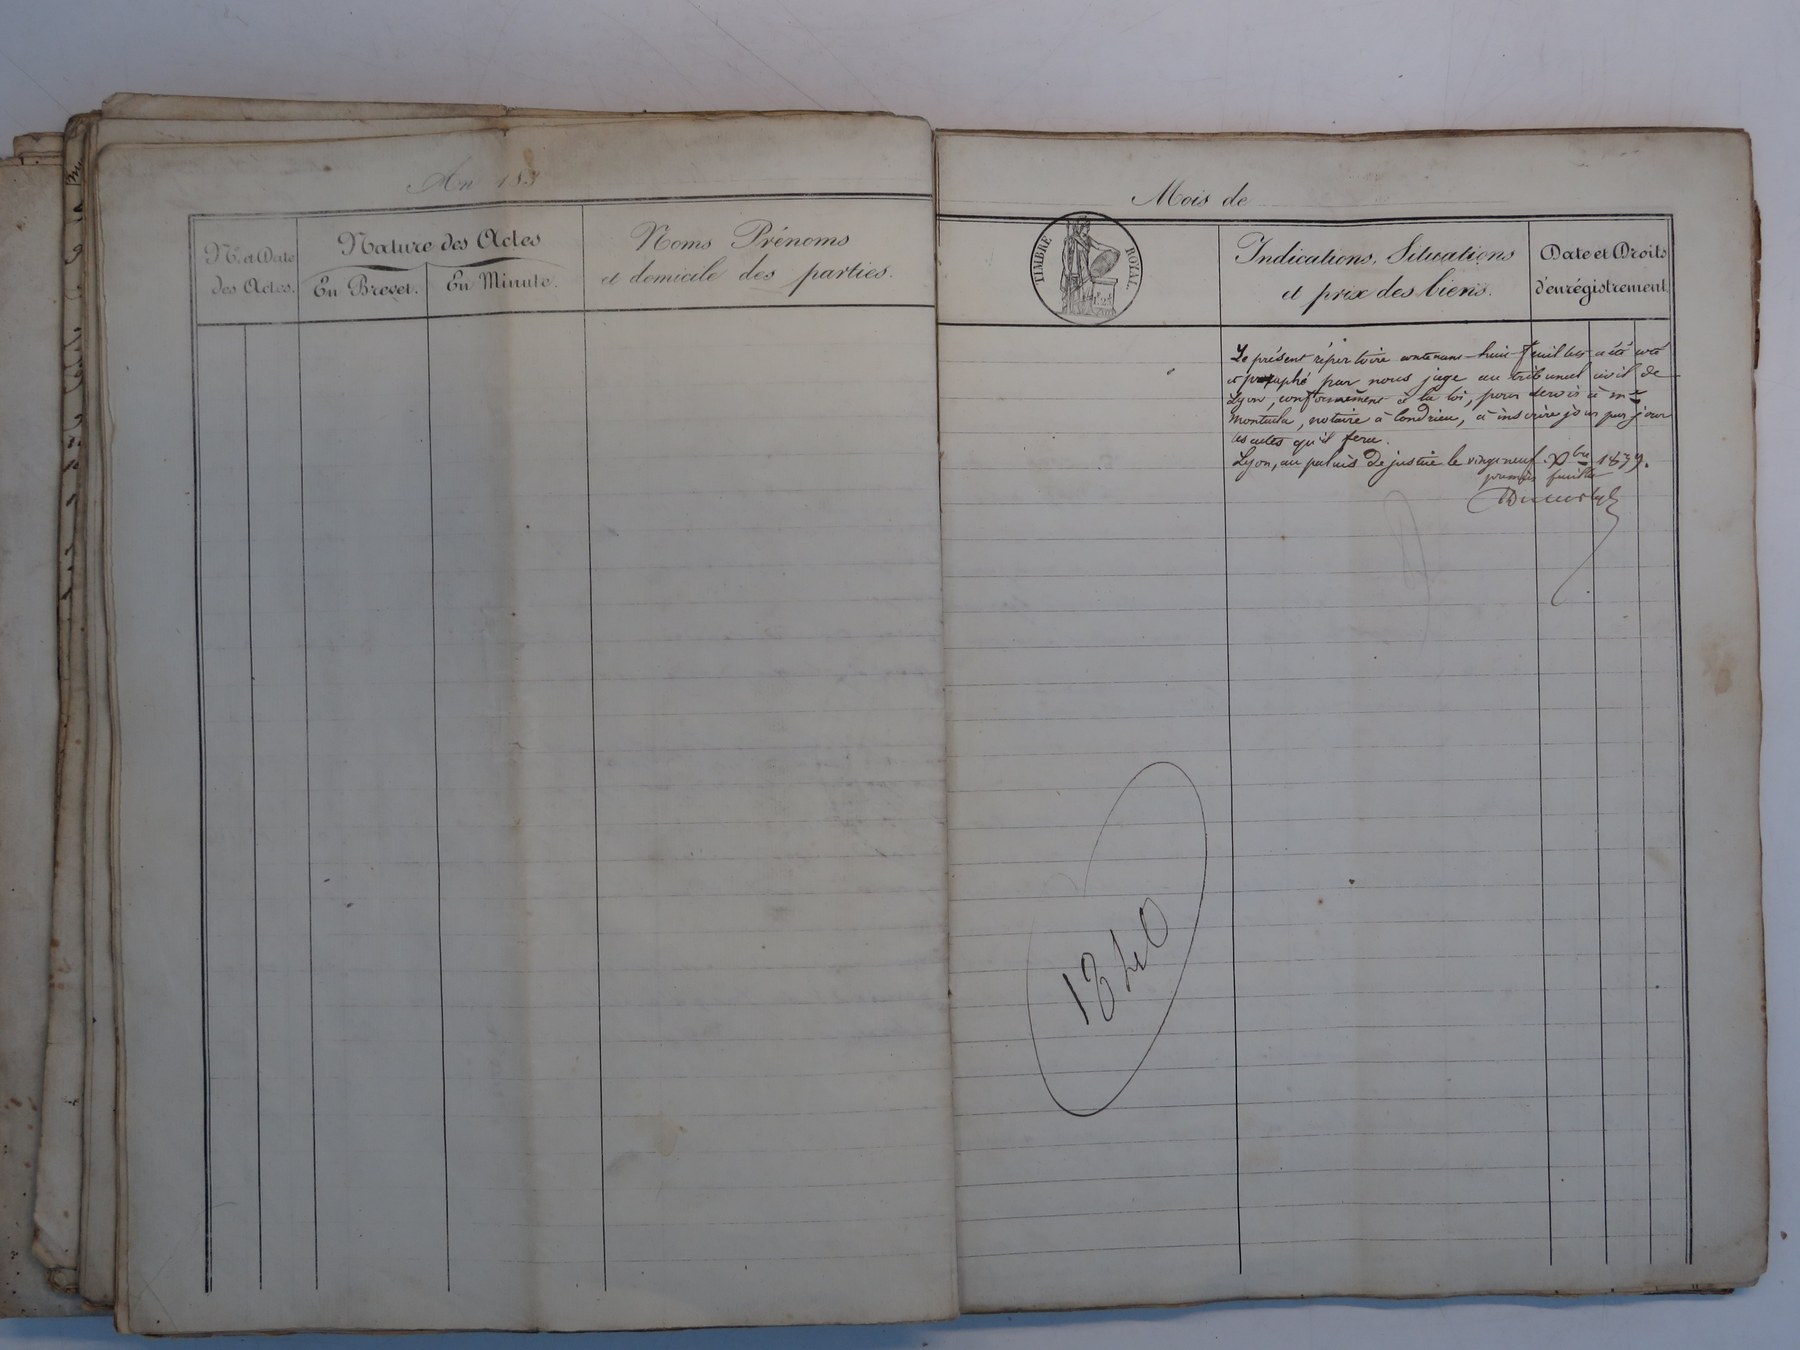 An 183
Mois de
Nos et Date
des Actes.
Nature des Actes
En Brevet.
En Minute.
Noms Prénoms
et domicile des parties.
TIMBRE ROYAL
Indications, Situations
et prix des biens.
Date et Droits
d'enrégistrement
Le présent répertoire contenant huit feuilles a été coté
et paraphé par nous juge au tribunal civil de
Lyon, conformément à la loi, pour servir à me
notaire à Condrieu, à inscrire jour par jour
les actes qu'il fera.
Lyon, au palais de justice le vingt neuf Xbre 1839.
premier feuillet
1840